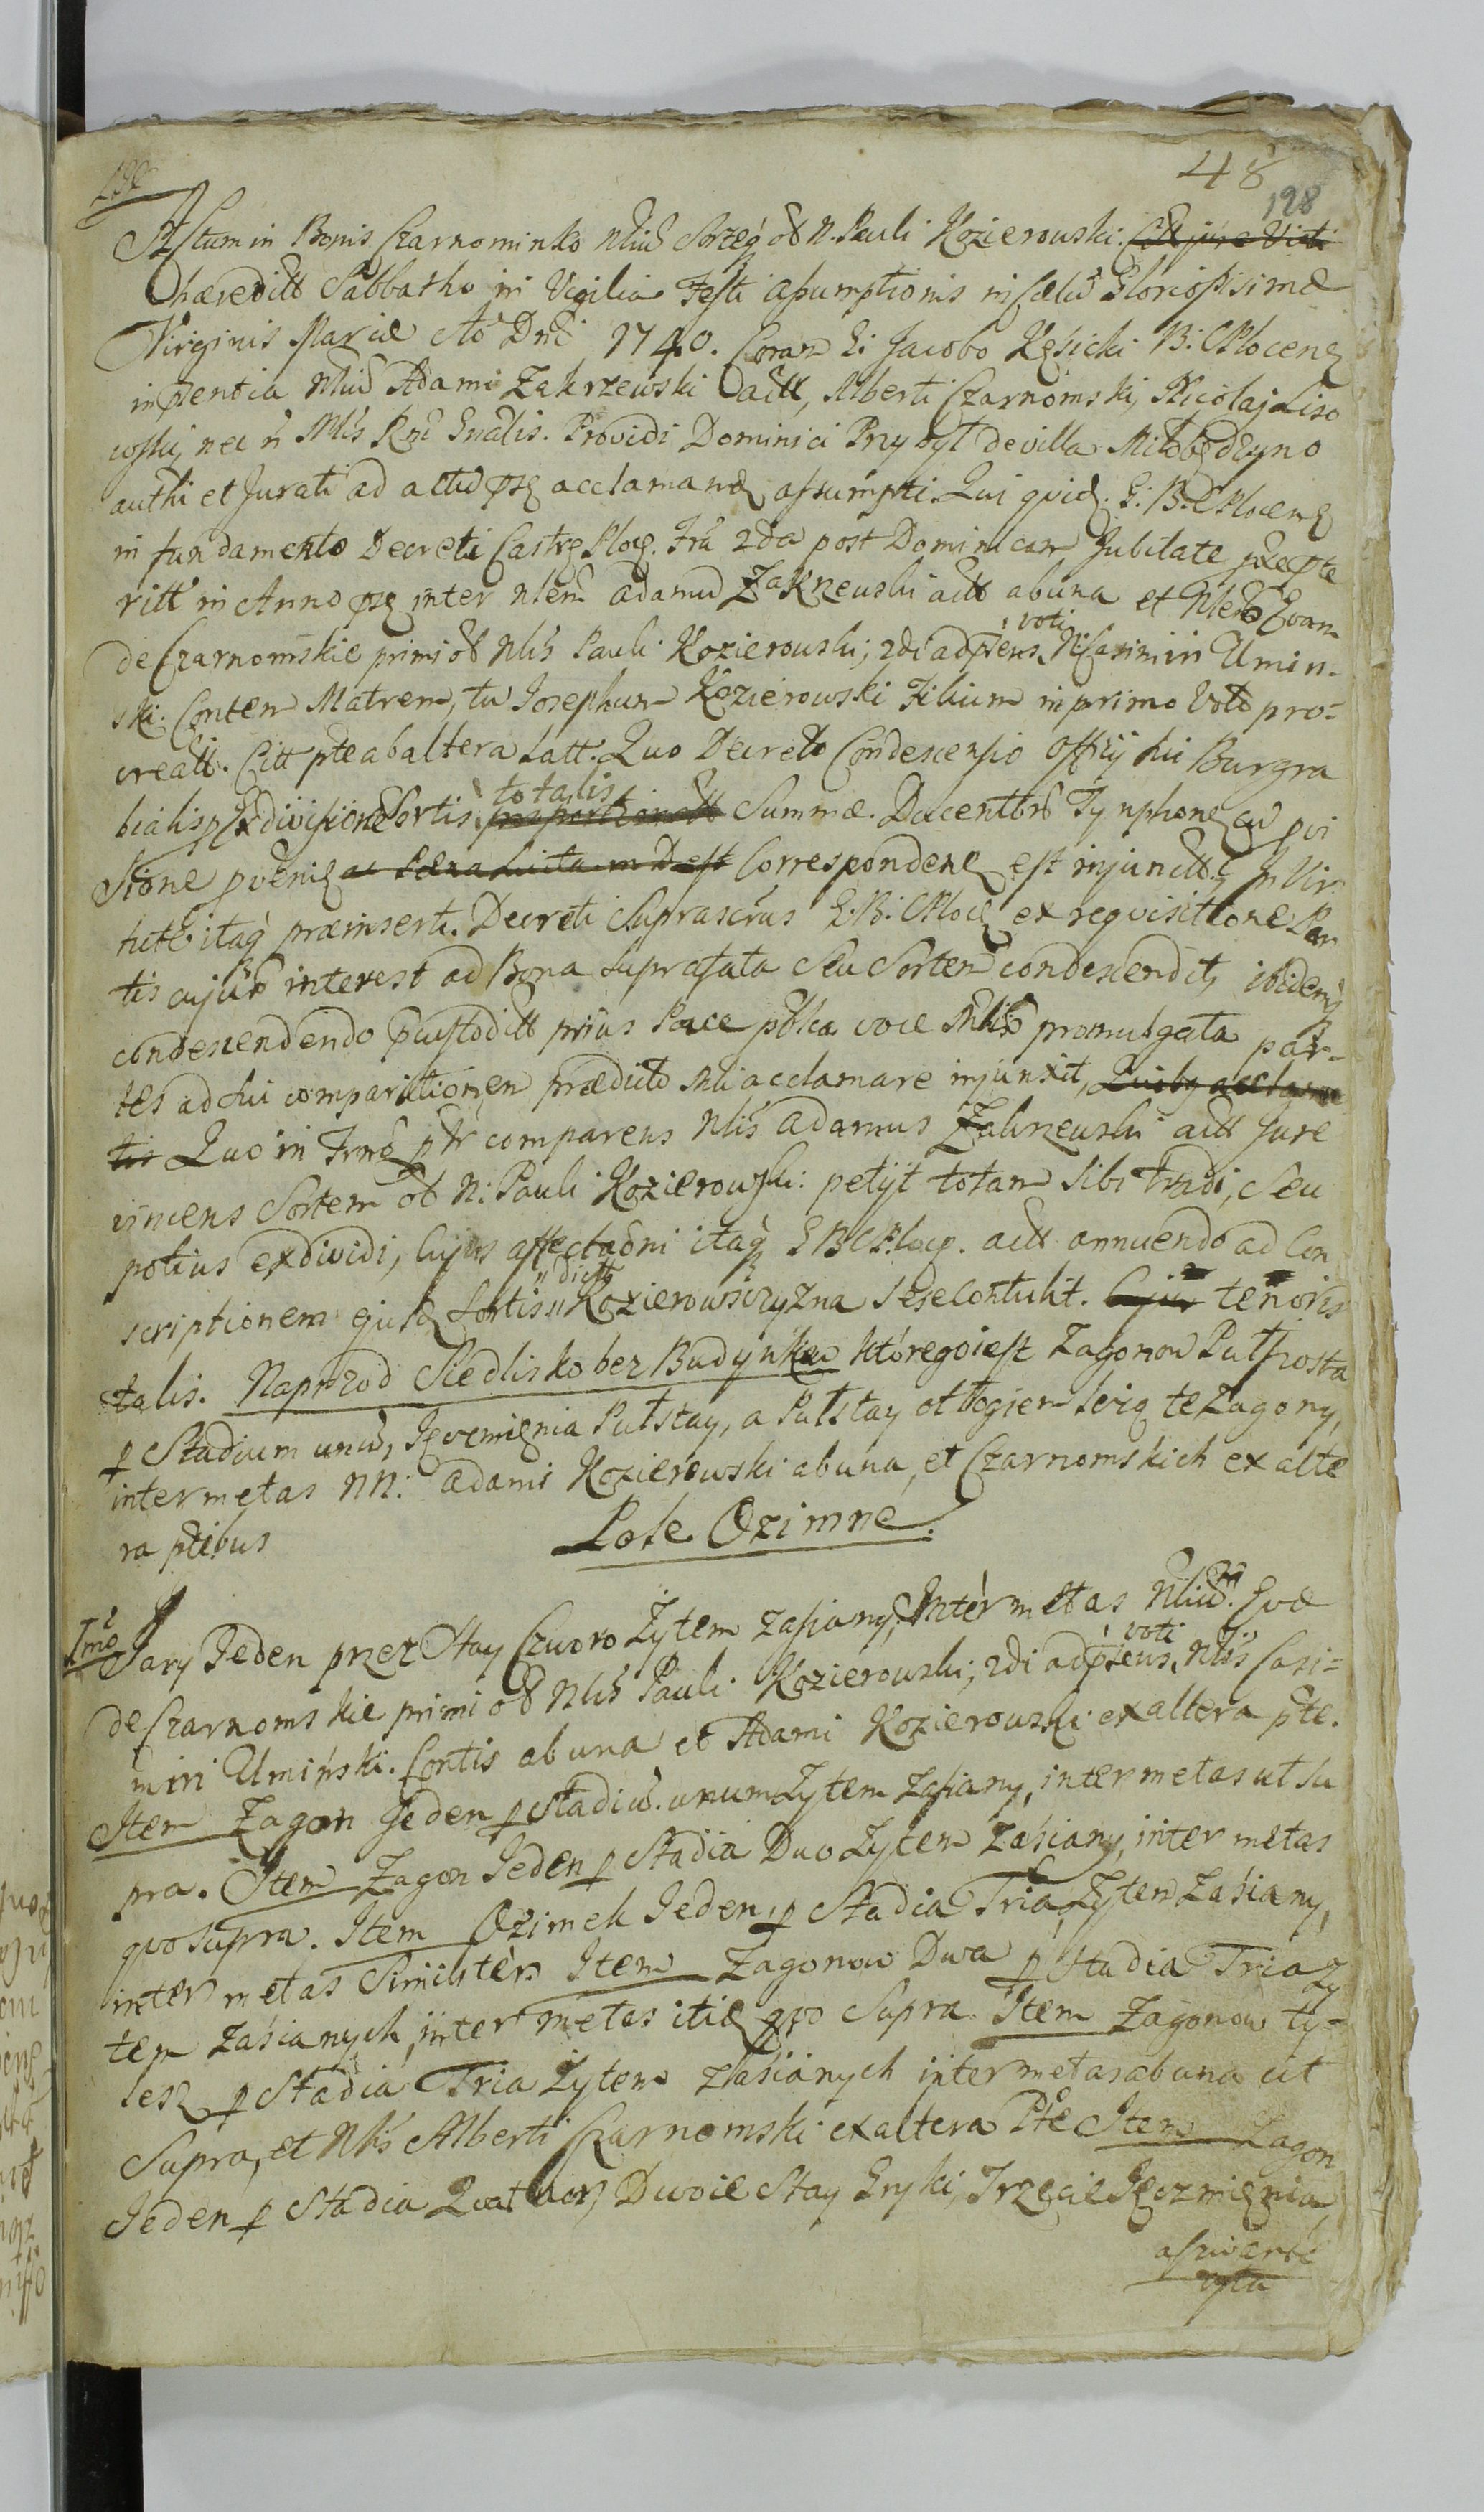 48
198
Actum in Bonis Czarnominko Nliũ Sorzeg̃ ob N. Pauli Kozierowski.
hæreditt Sabbatho in Vigilia Festi Assumptionis in Cælũ Gloriosissimæ
Virginis Mariæ Aō Dnĩ 1740. Coram G: Jacobo Kęsicki B: C Plocens
in pñentia Nliũ Adami Zakrzewski actt, Alberti Czarnomski, Nicolaj Liso
wskij nec ñ Mlis Rni Gnalis. Providi Dominici Przybył de villa Miłobędzyno
authi et Jurati ad actũ pñt acclamand assumpti. Qui quid. G: B: C Plocens
in fundamento Decreti Castr Ploc. Fria 2da post Dominicam Jubilate præte
ritt in Anno pñt inter Nlem Adamũ Zakrzewski actt ab una et Nlem Evam
de Czarnomskie primi ob Nlis Pauli Kozierowski, 2di ad pñens voti N Casimiri Umin-
ski. Contem Matrem, tũ Josephum Kozierowski Filium in primo Voto pro-
creatt. Citt pte ab altera Latt. Quo Decreto Condescensio Officij hui Burgra
bialis p Exdivisione Sortis totalis Summæ. Ducentorũ Tynphon cũ qvi
sione pvenien Corresponden est injunctt. In Vir
tute itaq præinserti Decreti Suprascrus G: B: C Ploc ex reqvisitione Par
tis cujus interest ad Bona suprafata Seu Sortem condescendit, ibidemq
condescendendo custoditt prius Pace pblica voce Mlis promulgata par-
tes ad hui comparitionem prædicto Mli acclamare injunxit,
Quo in Trno ptr comparens Nlis Adamus Zakrzewski actt Jure
vincens Sortem ob N: Pauli Kozierowski: petijt totam sibi tradi, seu
potius exdividi, Cujus affectaõni itaq G B C Ploc. actt annuendo ad Con
scriptionem ejusd Sortis dictt Kozierowsczyzna sese contulit. tenoris
talis. Naprzod Siedlisko bez Budynkow którego iest Zagonow Pułszosta
p Stadium unũ, Jęczmięnia Pułstay, a Pułstay odłogiem leżą te Zagony,
inter metas NN: Adami Kozierowski ab una, et Czarnomskich ex alte
ra ptibus
Pole Ozimne.
Imo Jary Jeden przez Stay Czworo Żytem zasiany, Inter metas Nliũ Evæ
de Czarnomskie primi ob Nlis Pauli Kozierowski, 2di ad pñens voti Nlis Casi-
miri Uminski. Contis ab una et Adami Kozierowski ex altera pte.
Item Zagon Jeden p Stadiũ unum Żytem zasiany, inter metas ut su
pra. Item Zagon Jeden p Stadia Duo Żytem zasiany, inter metas
qvo supra. Item Ozimek Jeden, p Stadia Tria Żytem zasiany,
inter metas Similster Item Zagonow Dwa p Stadia Tria Ży
tem zasianych, inter metas itid qvo Supra. Item Zagonow ty-
lesz p Stadia Tria Żytem zasianych inter metas ab una ut
Supra, et Nlis Alberti Czarnomski ex altera Pte Item Zagon
Jeden p Stadia Quatuor, Dwoie Stay Gryki, Trzecie Jęczmięnia,